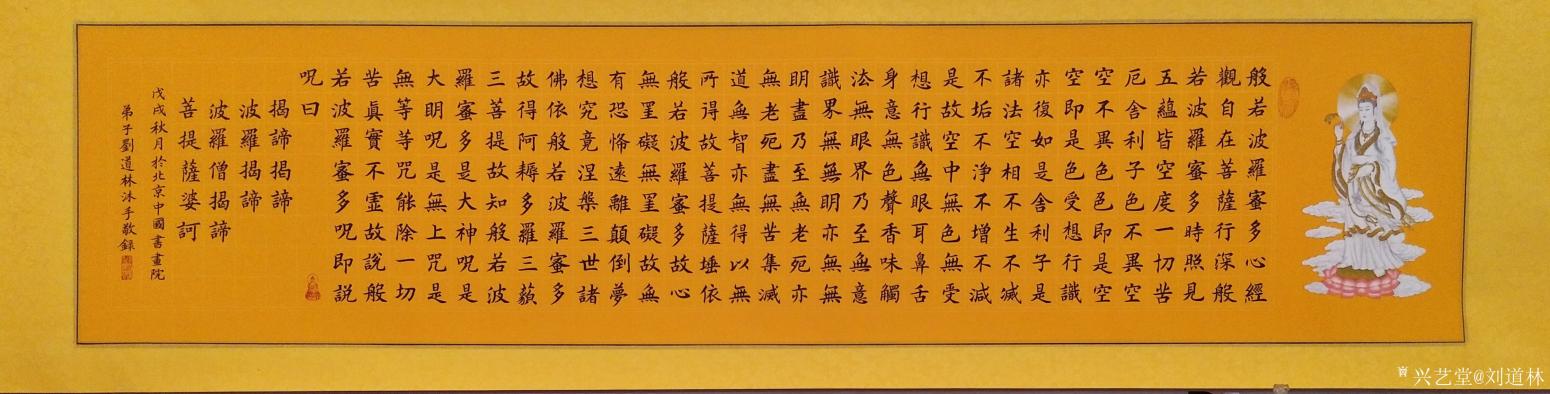 般若波羅蜜多心經
觀自在菩薩行深般
若波羅蜜多時照見
五蘊皆空度一切苦
厄舍利子色不異空
空不異色色即是空
空即是色受想行識
亦復如是舍利子是
諸法空相不生不滅
不垢不淨不增不減
是故空中無色無受
想行識無眼耳鼻舌
身意無色聲香味觸
法無眼界乃至無意
識界無無明亦無無
明盡乃至無老死亦
無老死盡無苦集滅
道無智亦無得以無
所得故菩提薩埵依
般若波羅蜜多故心
無罣礙無罣礙故無
有恐怖遠離顛倒夢
想究竟涅槃三世諸
佛依般若波羅蜜多
故得阿耨多羅三藐
三菩提故知般若波
羅蜜多是大神呪是
大明呪是無上咒是
無等等咒能除一切
苦真實不虛故說般
若波羅蜜多呪即説
呪曰
揭諦揭諦
波羅揭諦
波羅僧揭諦
菩提薩婆訶
戊戌秋月於北京中國書畫院
弟子劉道林沐手敬錄
兴艺堂@刘道林